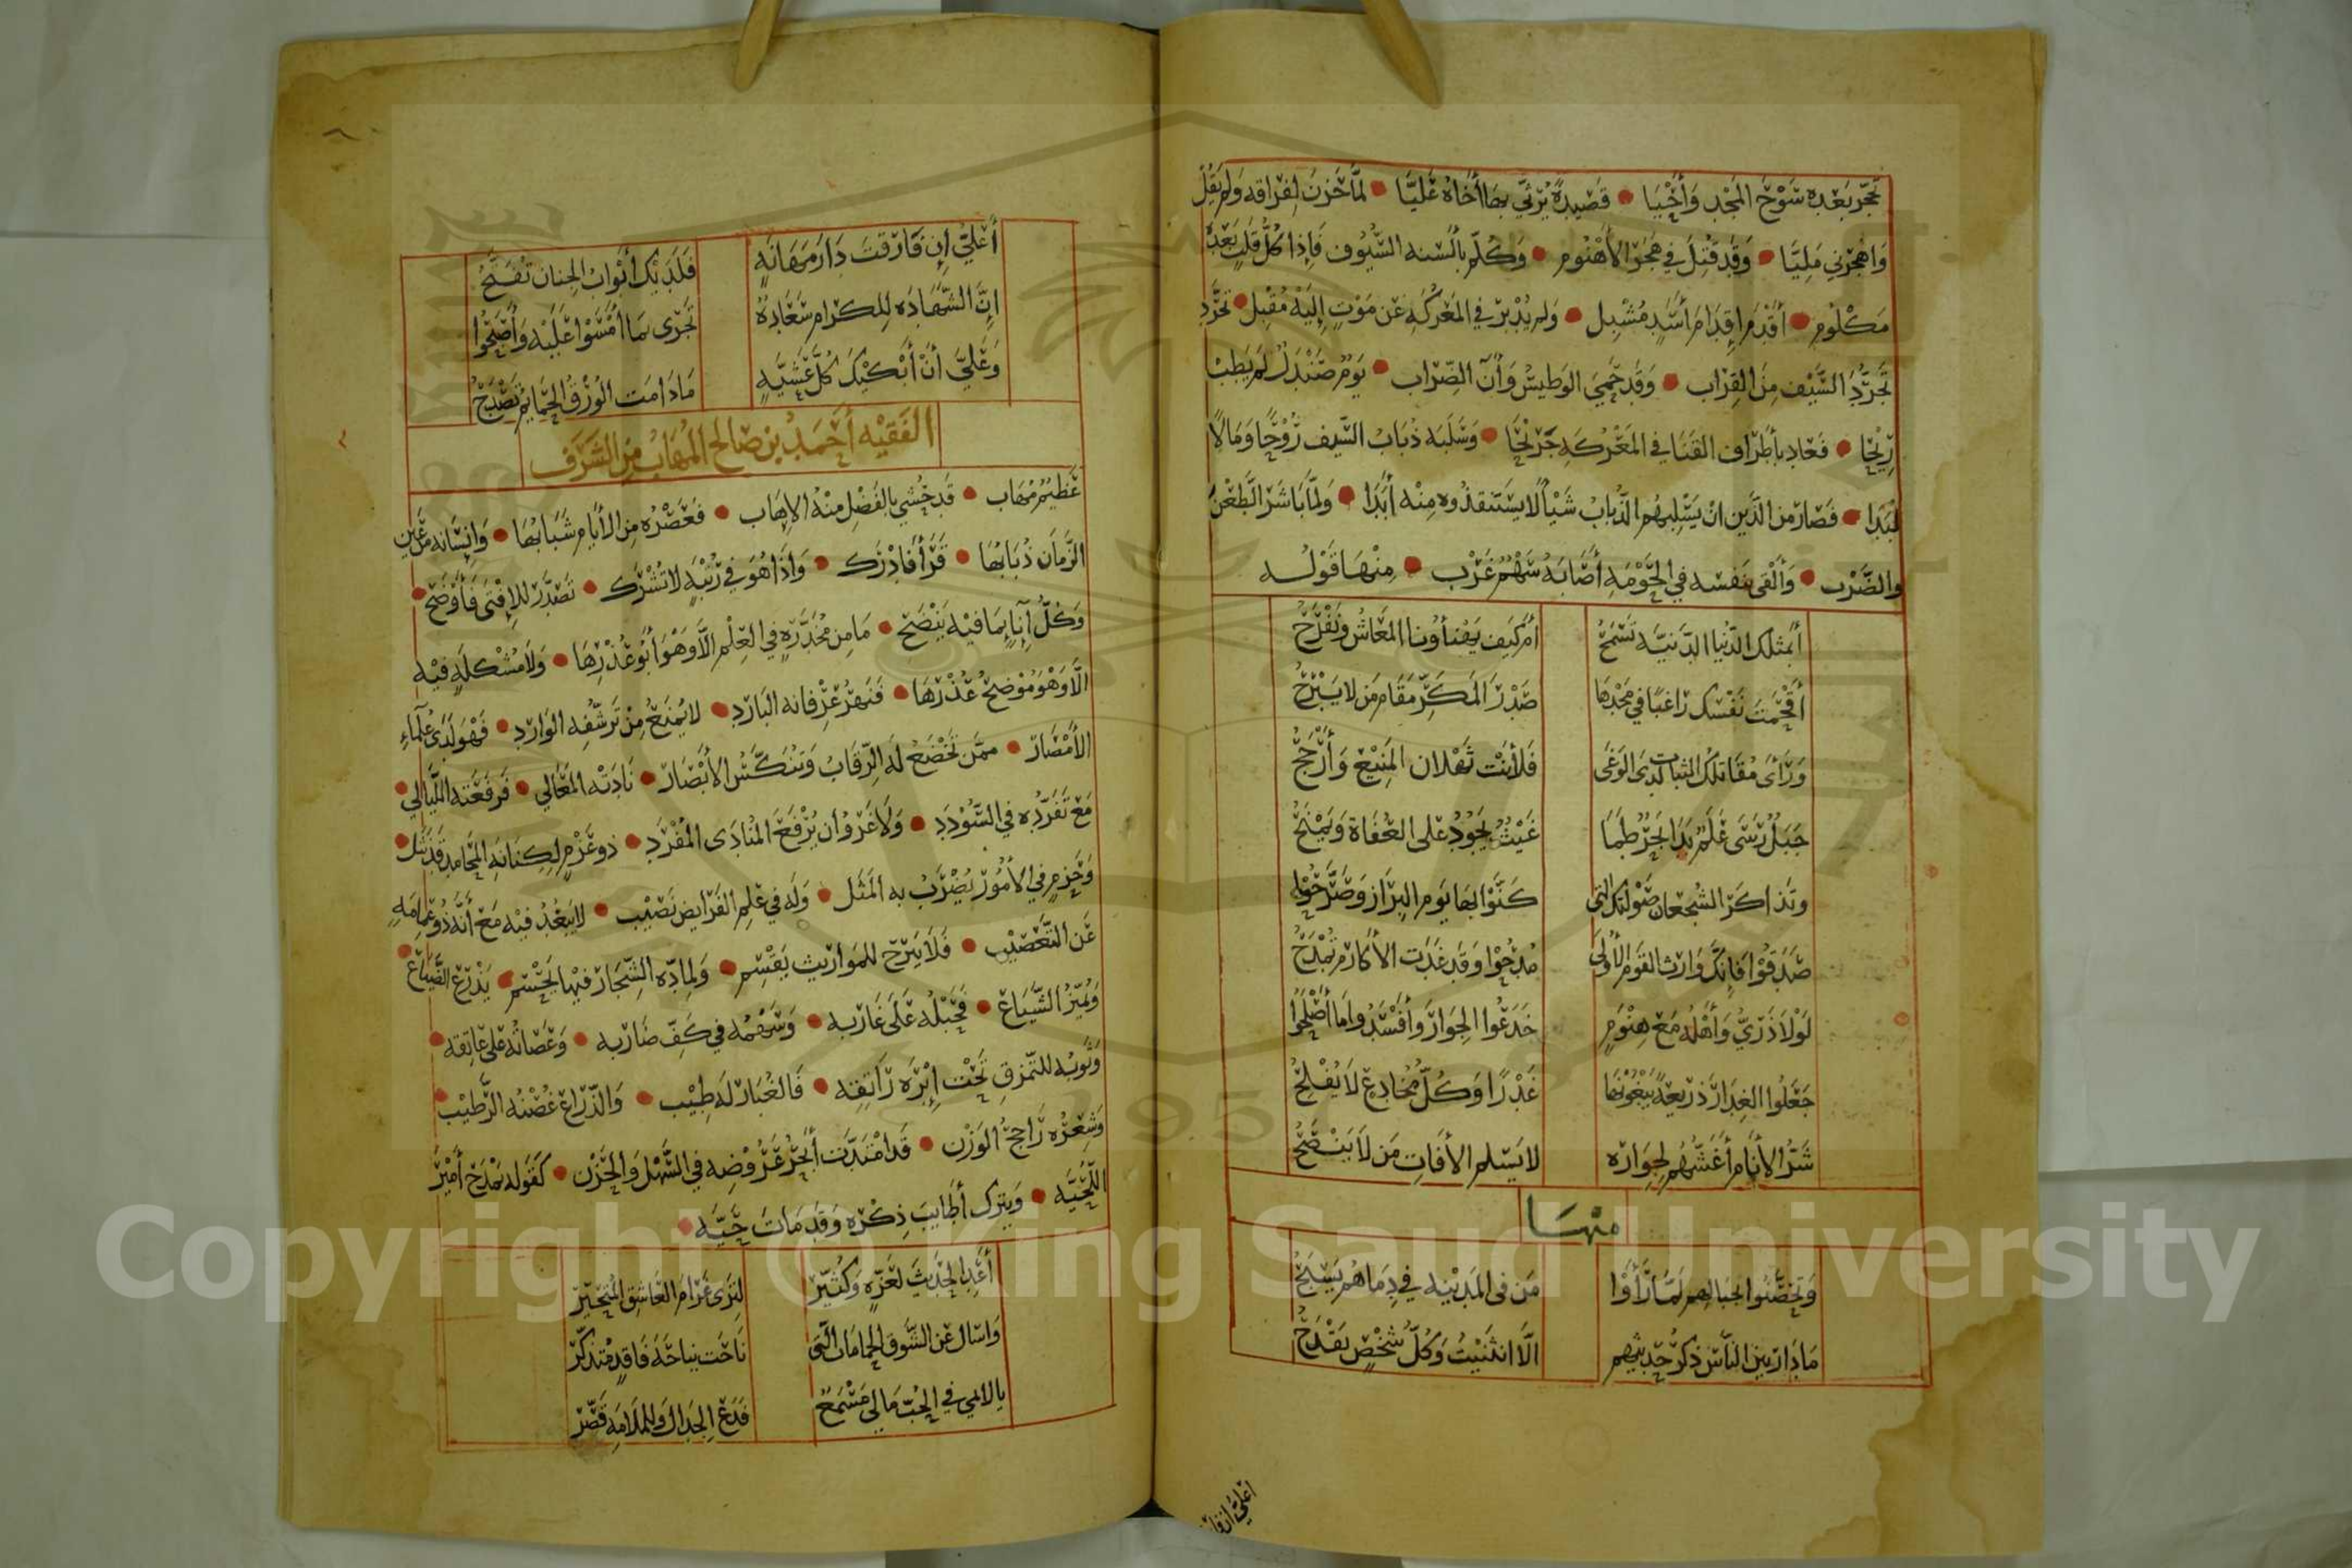 تجر بعده شوح المجد وأخيا • قصيدة يرثي بها أخاه عليا • لما حزن لفراقه ولم يقل
واهجرني مليا • وقد قتل في هجر الأهنوم • وكلم بألسنه السيوف فإذا كل قلب بعده
مكلوم • أقدم إقدام أسد مشبل • ولم يدبر في المعركه عن موت إليه مقبل • تجرد
تجرد السيف من القراب • وقد حمي الوطيس وآن الضراب • يوم صندل لم يطب
ريحا • فعاد بأطراف القنا في المعركه جريحا • وسلبه ذباب السيف روحا ومالا
لبدا • فصار من الذين ان يسلبهم الذباب شيأ لا يستنقذوه منه أبدا • ولما باشر الطعن
والضرب • وألقى بنفسه في الحومه أصابه سهم غرب • منها قوله
أبمثلك الدنيا الدنيه تسمح أم كيف يهنأونا المعاش ونفرح
أقحمت نفسك راغبا في مجدها صدر المكر مقام من لا يبرح
ورأى مقاتلك الثبات لدى الوغى فلأنت ثهلان المنيع وأرجح
جبل رسى علم بدا بحر طما غيث يجود على العفاة ويمنح
وتذاكر الشجعان صولتك التي كنوا بها يوم البراز وصرحوا
صدقوا فإنك وارث القوم الأولى مدحوا وقد غدت الأكارم تمدح
لولا ذري وأهله مع هنوم خدعوا الجوار وأفسدوا ما أصلحوا
جعلوا الغدار ذريعة يبغونها غدرا وكل مخادع لا يفلح
شر الأنام أغشهم لجواره لا يسلم الأفات من لا ينصح
منها
وتحضنوا بجبالهم لما رأوا من في المدينه في دماهم يسبح
ما دار بين الناس ذكر حديثهم الا انثنيت وكل شخص يقدح
أعلي ان فار
أعلي إن فارقت دار مهانه فلديك أبواب الجنان تفتح
إن الشهاده للكرام سعادة تجرى بما أمسوا عليه وأصبحوا
وعلي أن أبكيك كل عشية ما دامت الورق الحمايم تصدح
الفقيه أحمد بن صالح المهاب من الشرف
عظيم مهاب • قد حشي بالفضل منه الإهاب • فعصره من الأيام شبابها • وانسانه من عين
الزمان ذبابها • قرأ فادرك • واذا هو في رتبه لا تشرك • تصدر للإفتى فأوضح •
وكل آناء بما فيه ينضح • ما من مخدره في العلم الا وهو أبو عذرها • ولا مشكله فيه
الا وهو موضح عذرها • فنهر عرفانه البارد • لا يمنع من ترشفه الوارد • فهو لدى علماء
الأمصار • ممن تخضع له الرقاب وتنكس الأبصار • نادته المعالي • فرفعته الليالي •
مع تفرده في السودد • ولا غرو ان يرفع المنادى المفرد • ذو عزم لكنانه المحامد قد نثل •
وحزم في الأمور يضرب به المثل • وله في علم الفرايض نصيب • لا يبعد فيه مع أنه ذو عمامه
عن التعصيب • فلا يبرح للمواريث يقسم • ولمادة الشجار فيها يحسم • يذرع الضياع •
ويميز الشياع • فحبله على غاربه • وسهمه في كف ضاربه • وعصاته على عاتقه •
وثوبه للتمزق تحت إبره راتقه • فالغبار له طيب • والذراع غصنه الرطيب •
وشعره راجح الوزن • قد امتدت أبحر عروضه في السهل والحزن • كقوله يمدح أمير
اللحيه • ويترك أطايب ذكره وقد مات حيه •
أعد الحديث لعزه وكثير لترى غرام العاشق المتحير
واسال عن الشوق الحمامات التي ناحت نياحة فاقد متذكر
يا لايمي في الحب ما لي مسمع فدع الجدال وللملامه قصر
Copyright © King Saud University
1957